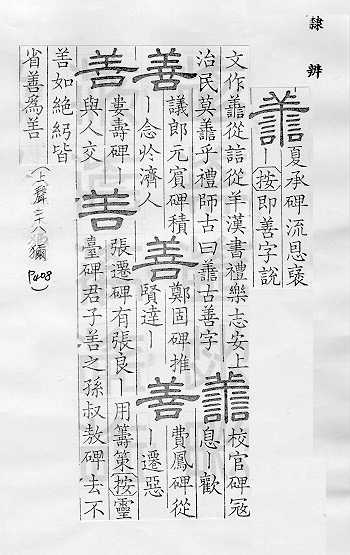 隸辨
譱 夏承碑流恩褒
ー按即善字說
文作譱從誩從羊漢書禮樂志安上
治民莫譱乎禮師古曰譱古善字
譱 校官碑冦
息ー歡
善 議郎元賓碑積
ー念於濟人
善 鄭固碑推
賢達ー
善 費鳳碑從
ー遷惡
善 婁壽碑ー
與人交
善 張遷碑有張良ー用籌策按靈
臺碑君子善之孫叔敖碑去不
善如絶紖皆
省善為
上聲二八獮